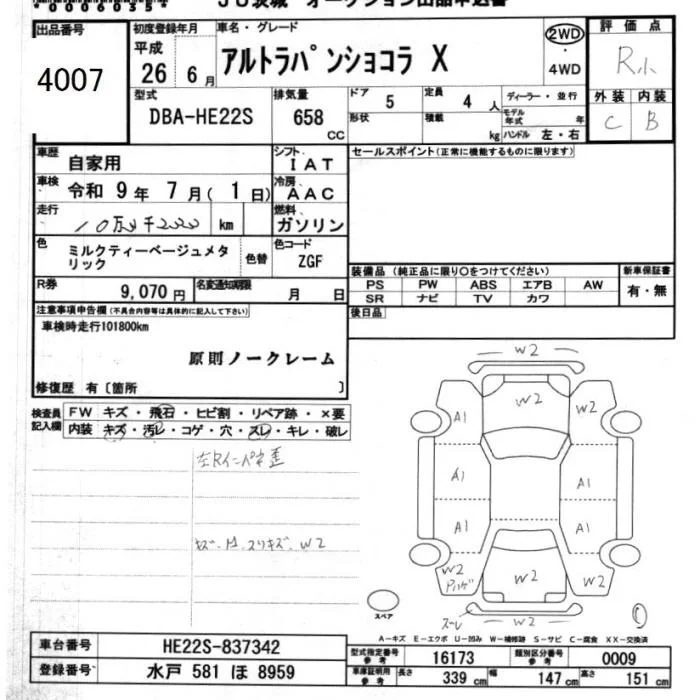 00006035
JU茨城 オークション出品申込書
出品番号
4007
初度登録年月
平成
26 6月
車名・グレード
アルトラパンショコラ X
2WD
・
4WD
評価点
R
外装 内装
C B
型式
DBA-HE22S
排気量
658
CC
ドア 5
形状
定員 4 人
積載 kg
ディーラー・並行
モデル年式 年
ハンドル 左・右
車歴 自家用
シフト IAT
車検 令和 9年 7月( 1日)
冷房 AAC
走行 10万 2千200 km
燃料 ガソリン
色 ミルクティーベージュメタリック
色替
色コード ZGF
R券 9,070円
名変通知期限 月 日
セールスポイント(正常に機能するものに限ります)
装備品 (純正品に限り○をつけてください)
PS PW ABS エアB AW
SR ナビ TV カワ
新車保証書
有・無
後日品
注意事項申告欄(不具合内容等は具体的に記入して下さい)
車検時走行101800km
原則ノークレーム
修復歴 有〔箇所 〕
検査員記入欄
FW キズ・飛石・ヒビ割・リペア跡・×要
内装 キズ・汚レ・コゲ・穴・スレ・キレ・破レ
左Rインパネ歪
キズ・凹 スリキズ・W2
W2
W2
A1
W2
A1
A1
A1
A1
W2
W2
W2
スペア
A-キズ E-エクボ U-凹み W-補修跡 S-サビ C-腐食 XX-交換済
車台番号 HE22S-837342
登録番号 水戸 581 ほ 8959
型式指定番号 参考 16173
類別区分番号 参考 0009
車庫証明用 参考 長さ 339 cm 幅 147 cm 高さ 151 cm